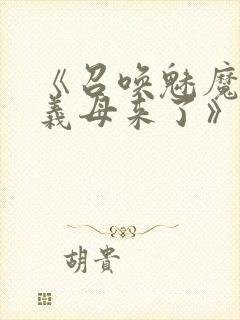 《召喚魅魔
義母来了》
胡貴